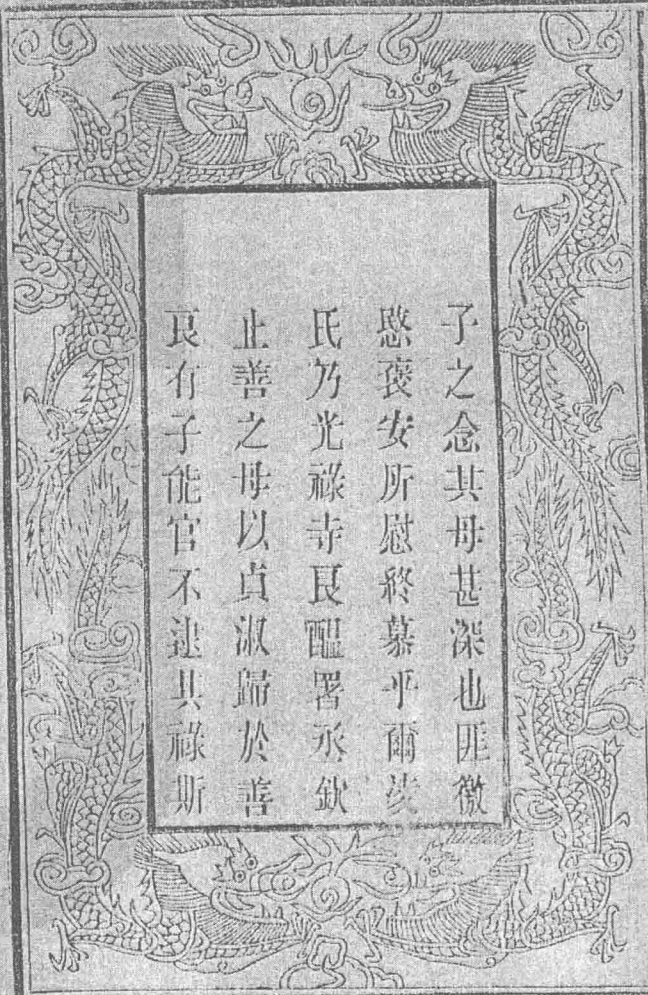 子之念其母甚深也匪徼
愍褒安所慰終慕乎爾
氏乃光祿寺良醞署丞欽
止善之母以貞淑歸於善
良有子能官不逮其祿斯